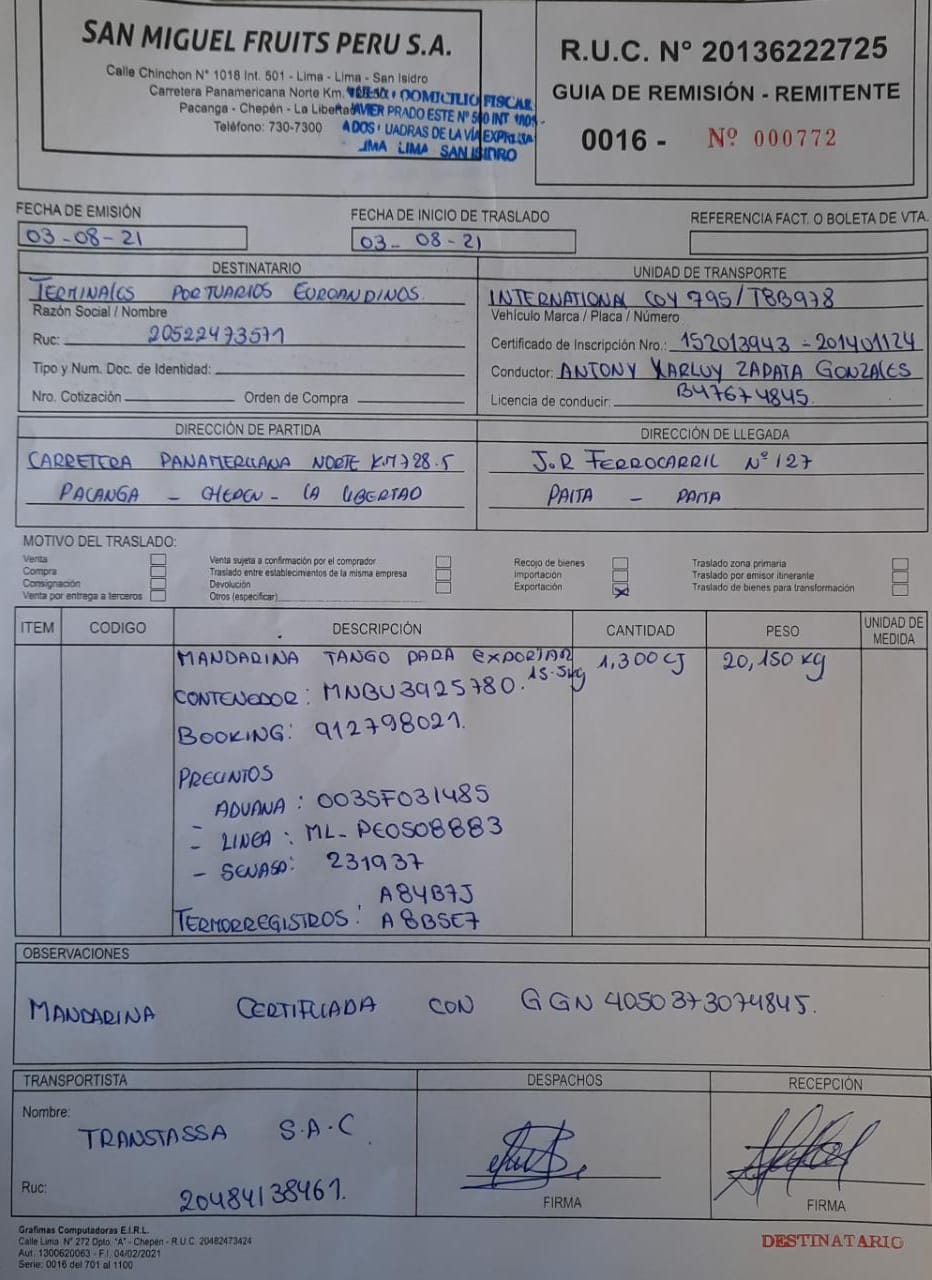 SAN MIGUEL FRUITS PERU S.A.
Calle Chinchon N° 1018 Int. 501 - Lima - Lima - San Isidro
Carretera Panamericana Norte Km.
Pacanga - Chepén - La Libertad
Teléfono: 730-7300
DOMICILIO FISCAL
JAVIER PRADO ESTE N° INT
UADRAS DE LA VÍA EXPRESA
LIMA SAN ISIDRO
R.U.C. N° 20136222725
GUIA DE REMISIÓN - REMITENTE
0016 - Nº 000772
FECHA DE EMISIÓN
03-08-21
FECHA DE INICIO DE TRASLADO
03- 08-21
REFERENCIA FACT. O BOLETA DE VTA.
DESTINATARIO
TERMINALES PORTUARIOS EUROANDINOS.
Razón Social / Nombre
Ruc: 20522473571
Tipo y Num. Doc. de Identidad:
Nro. Cotización Orden de Compra
UNIDAD DE TRANSPORTE
INTERNATIONAL COY 795/T8B978
Vehículo Marca / Placa / Número
Certificado de Inscripción Nro.: 152013943 - 201401124
Conductor: ANTONY KARLUY ZAPATA GONZALES
Licencia de conducir: B47674845.
DIRECCIÓN DE PARTIDA
CARRETERA PANAMERICANA NORTE KM 728.5
PACANGA - CHEPEN - LA LIBERTAD
DIRECCIÓN DE LLEGADA
J.R FERROCARRIL N° 127
PAITA - PAITA
MOTIVO DEL TRASLADO:
Venta
Compra
Consignación
Venta por entrega a terceros
Venta sujeta a confirmación por el comprador
Traslado entre establecimientos de la misma empresa
Devolución
Otros (especificar)
Recojo de bienes
Importación
Exportación X
Traslado zona primaria
Traslado por emisor itinerante
Traslado de bienes para transformación
ITEM CODIGO DESCRIPCIÓN CANTIDAD PESO UNIDAD DE MEDIDA
MANDARINA TANGO PARA EXPORTAR 1,300 CJ 20,150 kg
15.5kg
CONTENEDOR: MNBU3925780.
BOOKING: 912798021.
PRECINTOS
ADUANA : 0035F031485
- LINEA : ML-PE0508883
- SENASA: 231937
A84B7J
TERMORREGISTROS: A8BSE7
OBSERVACIONES
MANDARINA CERTIFICADA CON GGN 4050373074845.
TRANSPORTISTA
Nombre:
TRANSTASSA S.A.C.
Ruc: 20484138461.
DESPACHOS
FIRMA
RECEPCIÓN
FIRMA
Grafimas Computadoras E.I.R.L.
Calle Lima N° 272 Dpto. "A" - Chepén - R.U.C. 20482473424
Aut. 1300620063 - F.I. 04/02/2021
Serie: 0016 del 701 al 1100
DESTINATARIO